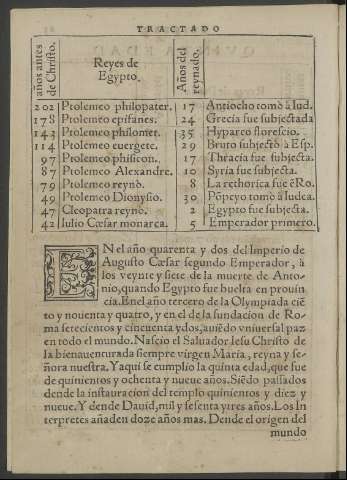 TRACTADO
años antes de Christo. Reyes de Egypto. Años del reynado.
202 Ptolemeo philopater. 17 Antiocho tomò à Iud.
178 Ptolemeo epifanes. 24 Grecia fue subjectada
143 Ptolemeo philomet. 35 Hyparco florescio.
114 Ptolemeo euergete. 29 Bruto subjectò à Esp.
97 Ptolemeo phiscon. 17 Thracia fue subjecta.
87 Ptolemeo Alexandre. 10 Syria fue subjecta.
79 Ptolemeo reynò. 8 La rethorica fue ẽ Ro.
49 Ptolemeo Dionysio. 30 Põpeyo tomò à Iudea.
47 Cleopatra reynò. 2 Egypto fue subjecta.
42 Iulio Cæsar monarca. 5 Emperador primero.
EN el año quarenta y dos del Imperio de
Augusto Cæsar segundo Emperador, à
los veynte y siete de la muerte de Anto-
nio, quando Egypto fue buelta en prouin
cia. En el año tercero de la Olympiada ciẽ
to y nouenta y quatro, y en el de la fundacion de Ro-
ma setecientos y cincuenta y dos, auiẽdo vniuersal paz
en todo el mundo. Nascio el Saluador Iesu Christo de
la bienauenturada siempre virgen Maria, reyna y se-
ñora nuestra. Y aqui se cumplio la quinta edad, que fue
de quinientos y ochenta y nueue años. Siẽdo passados
dende la instauracion del templo quinientos y diez y
nueue. Y dende Dauid, mil y sesenta y tres años. Los In
terpretes añaden doze años mas. Dende el origen del
mundo